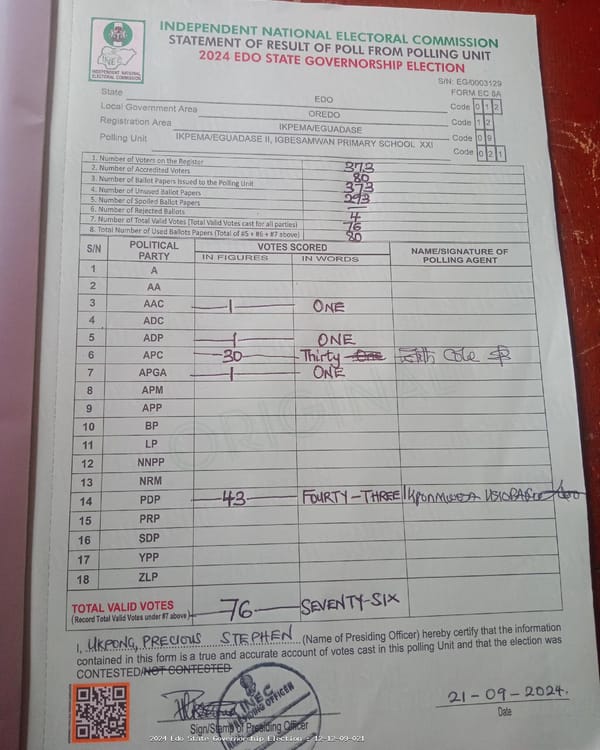 INDEPENDENT NATIONAL ELECTORAL COMMISSION
STATEMENT OF RESULT OF POLL FROM POLLING UNIT
2024 EDO STATE GOVERNORSHIP ELECTION
INEC
INDEPENDENT NATIONAL ELECTORAL COMMISSION
S/N: EG/0003129
FORM EC 8A
State EDO Code 0 1 2
Local Government Area OREDO Code 1 2
Registration Area IKPEMA/EGUADASE Code 0 9
Polling Unit IKPEMA/EGUADASE II, IGBESAMWAN PRIMARY SCHOOL XXI Code 0 2 1
1. Number of Voters on the Register 373
2. Number of Accredited Voters 80
3. Number of Ballot Papers Issued to the Polling Unit 373
4. Number of Unused Ballot Papers 293
5. Number of Spoiled Ballot Papers —
6. Number of Rejected Ballots 4
7. Number of Total Valid Votes (Total Valid Votes cast for all parties) 76
8. Total Number of Used Ballots Papers (Total of #5 + #6 + #7 above) 80
S/N POLITICAL PARTY VOTES SCORED NAME/SIGNATURE OF POLLING AGENT
IN FIGURES IN WORDS
1 A
2 AA
3 AAC 1 ONE
4 ADC
5 ADP 1 ONE
6 APC 30 Thirty One
7 APGA 1 ONE
8 APM
9 APP
10 BP
11 LP
12 NNPP
13 NRM
14 PDP 43 FOURTY-THREE
15 PRP
16 SDP
17 YPP
18 ZLP
ORIGINAL
TOTAL VALID VOTES 76 SEVENTY-SIX
(Record Total Valid Votes under #7 above)
I, UKPONG, PRECIOUS STEPHEN (Name of Presiding Officer) hereby certify that the information
contained in this form is a true and accurate account of votes cast in this polling Unit and that the election was
CONTESTED/NOT CONTESTED
INEC
PRESIDING OFFICER
21-09-2024.
Sign/Stamp of Presiding Officer Date
2024 Edo State Governorship Election - 12-12-09-021